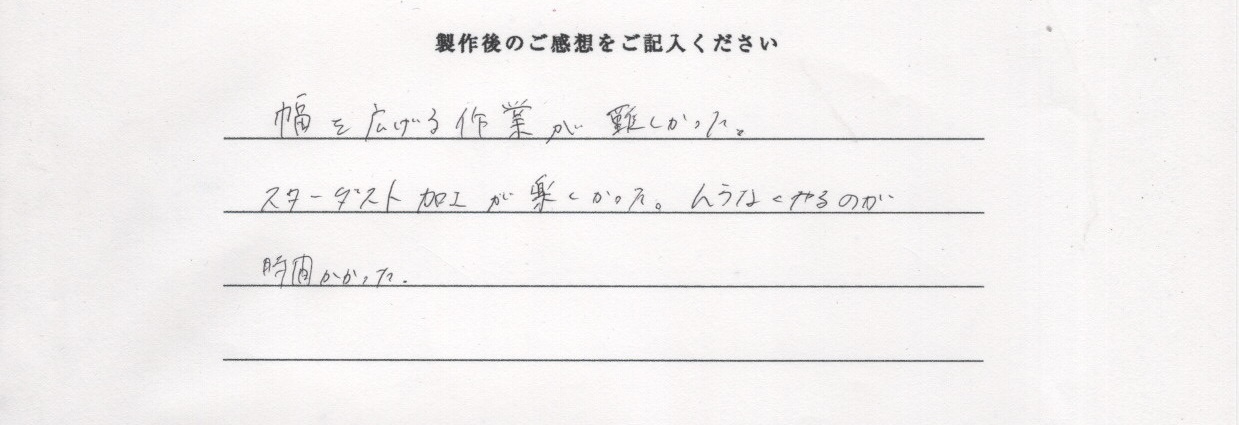 製作後のご感想をご記入ください
幅を広げる作業が難しかった。
スターダスト加工が楽しかった。んうなくやるのが
時間かかった.